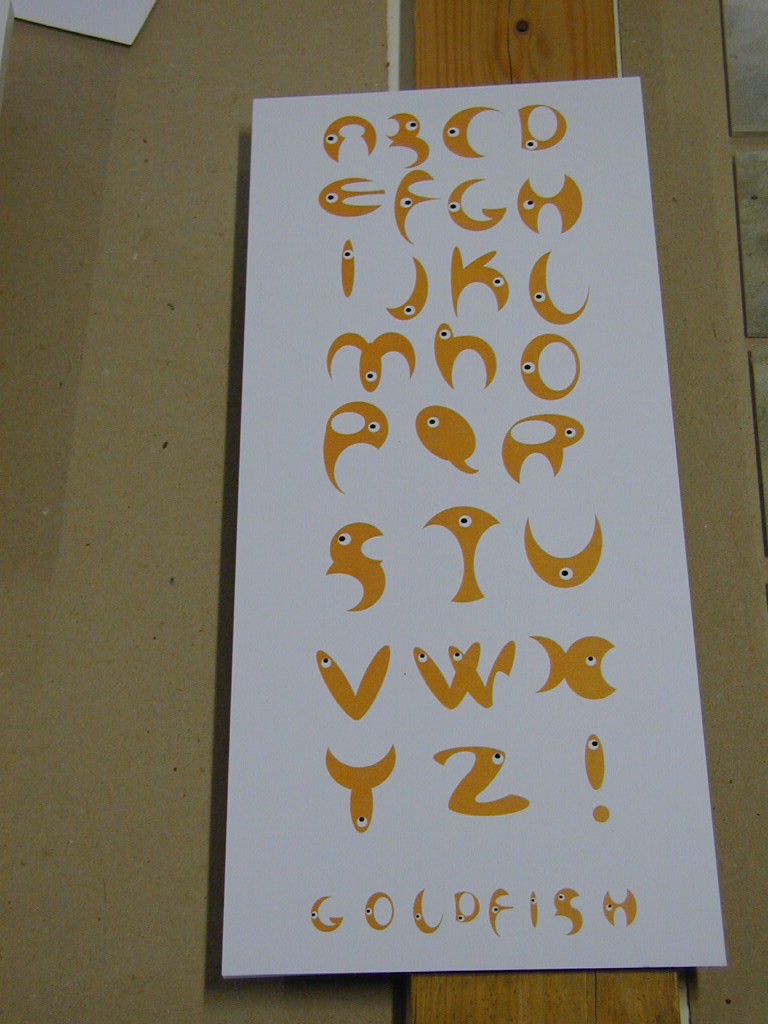 A B C D
E F G H
I J K L
M n O
P Q R
S T U
V W X
Y Z !
G O L D F I S H